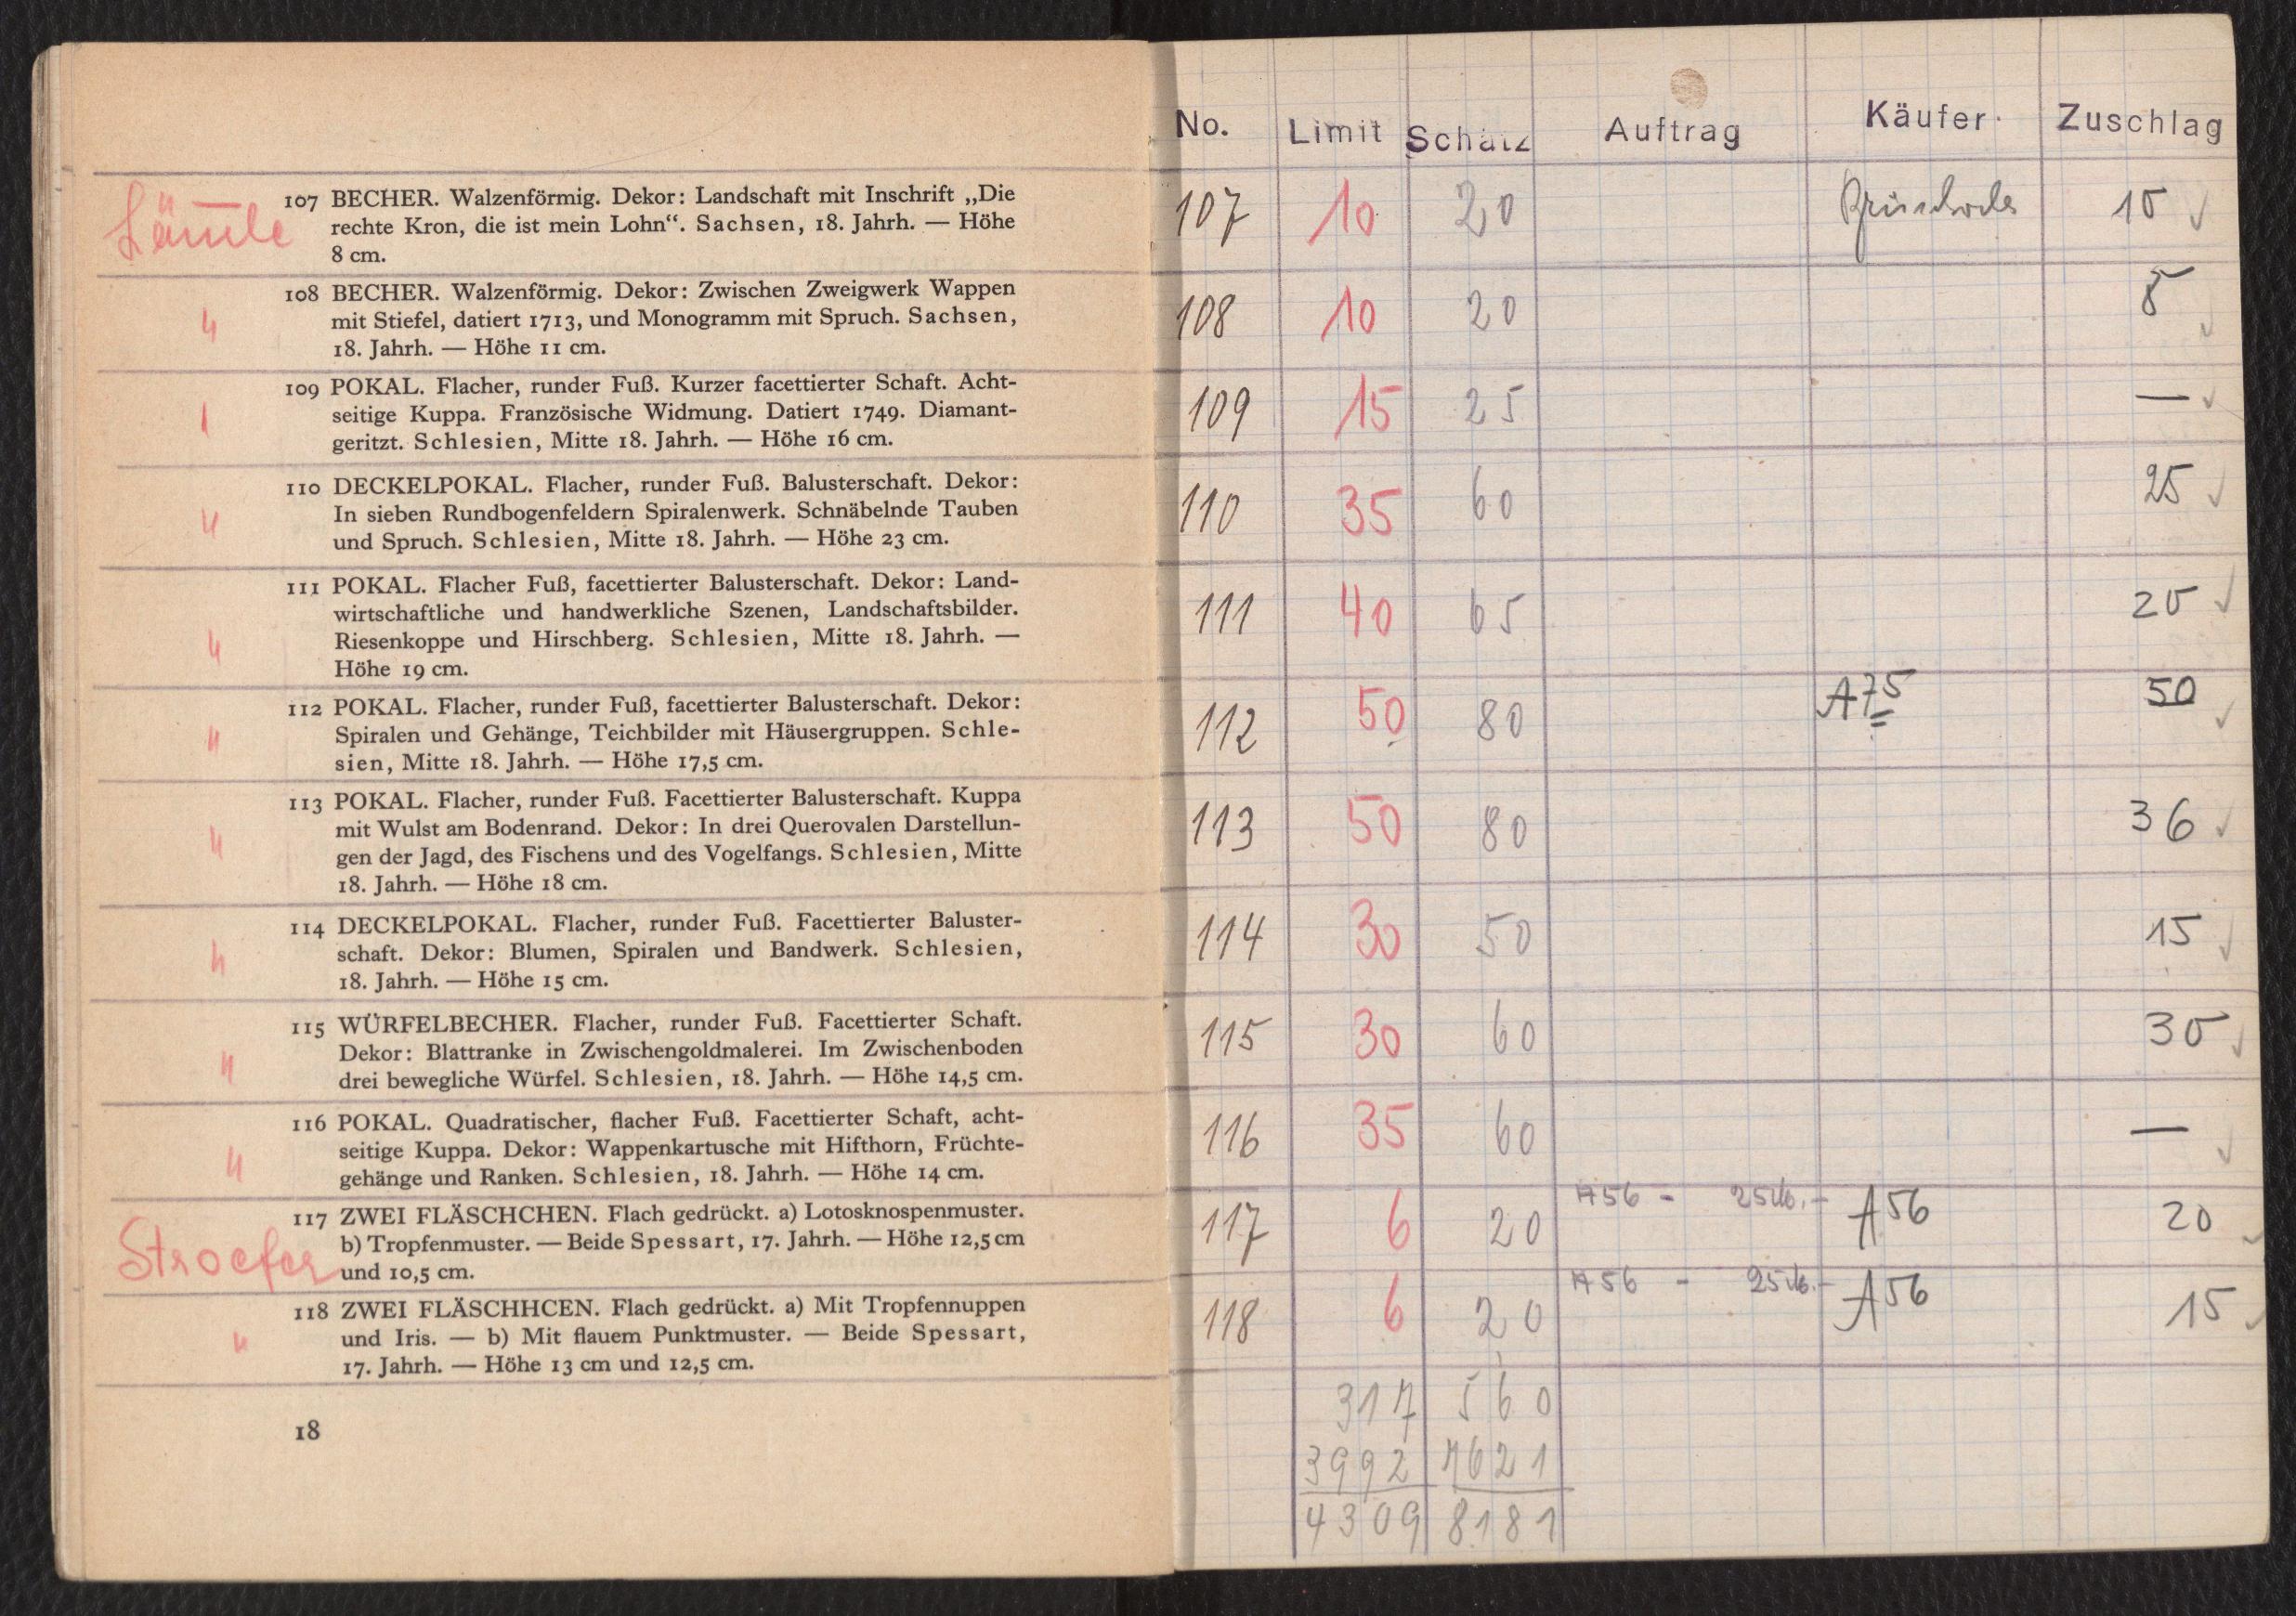 107 BECHER. Walzenförmig. Dekor: Landschaft mit Inschrift „Die
rechte Kron, die ist mein Lohn“. Sachsen, 18. Jahrh. — Höhe
8 cm.
"
108 BECHER. Walzenförmig. Dekor: Zwischen Zweigwerk Wappen
mit Stiefel, datiert 1713, und Monogramm mit Spruch. Sachsen,
18. Jahrh. — Höhe 11 cm.
109 POKAL. Flacher, runder Fuß. Kurzer facettierter Schaft. Acht-
seitige Kuppa. Französische Widmung. Datiert 1749. Diamant-
geritzt. Schlesien, Mitte 18. Jahrh. — Höhe 16 cm.
"
110 DECKELPOKAL. Flacher, runder Fuß. Balusterschaft. Dekor:
In sieben Rundbogenfeldern Spiralenwerk. Schnäbelnde Tauben
und Spruch. Schlesien, Mitte 18. Jahrh. — Höhe 23 cm.
"
111 POKAL. Flacher Fuß, facettierter Balusterschaft. Dekor: Land-
wirtschaftliche und handwerkliche Szenen, Landschaftsbilder.
Riesenkoppe und Hirschberg. Schlesien, Mitte 18. Jahrh. —
Höhe 19 cm.
"
112 POKAL. Flacher, runder Fuß, facettierter Balusterschaft. Dekor:
Spiralen und Gehänge, Teichbilder mit Häusergruppen. Schle-
sien, Mitte 18. Jahrh. — Höhe 17,5 cm.
"
113 POKAL. Flacher, runder Fuß. Facettierter Balusterschaft. Kuppa
mit Wulst am Bodenrand. Dekor: In drei Querovalen Darstellun-
gen der Jagd, des Fischens und des Vogelfangs. Schlesien, Mitte
18. Jahrh. — Höhe 18 cm.
"
114 DECKELPOKAL. Flacher, runder Fuß. Facettierter Baluster-
schaft. Dekor: Blumen, Spiralen und Bandwerk. Schlesien,
18. Jahrh. — Höhe 15 cm.
"
115 WÜRFELBECHER. Flacher, runder Fuß. Facettierter Schaft.
Dekor: Blattranke in Zwischengoldmalerei. Im Zwischenboden
drei bewegliche Würfel. Schlesien, 18. Jahrh. — Höhe 14,5 cm.
"
116 POKAL. Quadratischer, flacher Fuß. Facettierter Schaft, acht-
seitige Kuppa. Dekor: Wappenkartusche mit Hifthorn, Früchte-
gehänge und Ranken. Schlesien, 18. Jahrh. — Höhe 14 cm.
Stroefer
117 ZWEI FLÄSCHCHEN. Flach gedrückt. a) Lotosknospenmuster.
b) Tropfenmuster. — Beide Spessart, 17. Jahrh. — Höhe 12,5 cm
und 10,5 cm.
"
118 ZWEI FLÄSCHHCEN. Flach gedrückt. a) Mit Tropfennuppen
und Iris. — b) Mit flauem Punktmuster. — Beide Spessart,
17. Jahrh. — Höhe 13 cm und 12,5 cm.
18
No. Limit Schätz Auftrag Käufer Zuschlag
107 10 20 10 ✓
108 10 20 8 ✓
109 15 25 — ✓
110 35 60 25 ✓
111 40 65 20 ✓
112 50 80 A75 50 ✓
113 50 80 36 ✓
114 30 50 15 ✓
115 30 60 30 ✓
116 35 60 — ✓
117 6 20 A56 - 25 A56 20 ✓
118 6 20 A56 - 25 A56 15 ✓
317 560
3992 7621
4309 8181